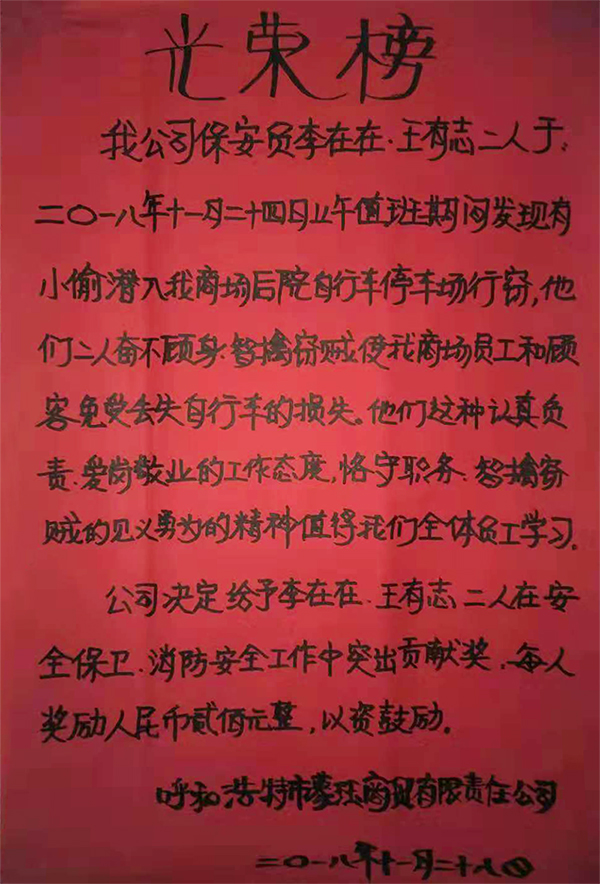 光荣榜
我公司保安员李在在、王有志二人于:
二〇一八年十一月二十四日上午值班期间发现有
小偷潜入我商场后院自行车停车场行窃,他
们二人奋不顾身智擒窃贼使我商场员工和顾
客免受丢失自行车的损失。他们这种认真负
责、爱岗敬业的工作态度,恪守职务、智擒窃
贼的见义勇为的精神值得我们全体员工学习。
公司决定给予李在在、王有志二人在安
全保卫、消防安全工作中突出贡献奖,每人
奖励人民币贰佰元整,以资鼓励。
呼和浩特市蒙 商贸有限责任公司
二〇一八年十一月二十八日